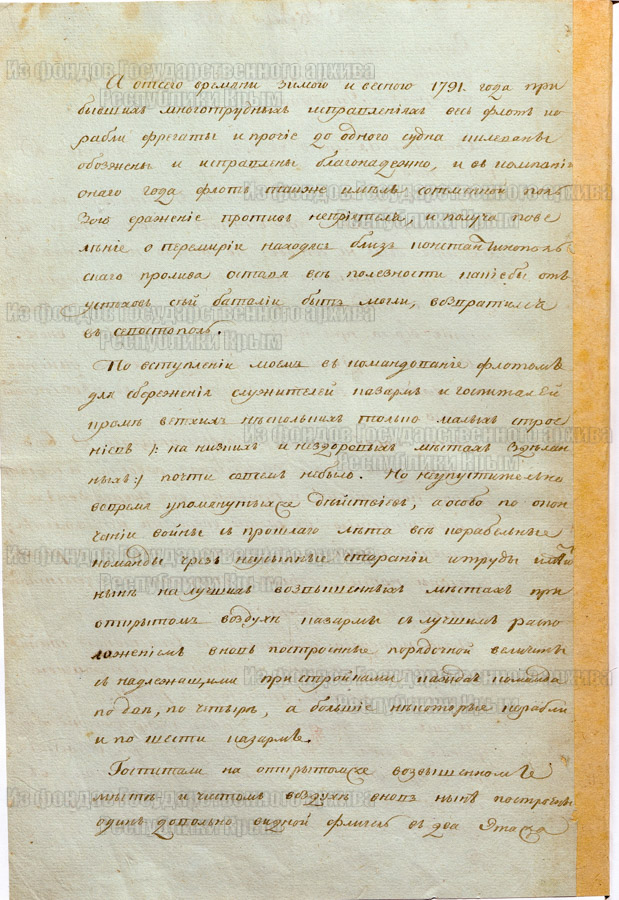 А отсего времяни зимою и весною 1791. года при
бывшихъ многотрудныхъ исправленіяхъ весь флотъ ко
рабли фрегаты и прочіе до одного судна килеваны
обозжены и исправлены благонадежно, и въ компаніи
онаго года флотъ также имелъ
сраженіе противъ непріятеля, и получа пове
лѣніе о перемиріи находясь близь константинополь
скаго пролива оставя всѣ полезности какіебы отъ
успѣховъ сей баталіи быть могли, возвратился
въ севостополь.
По вступленіи моемъ въ командованіе флотомъ
для сбереженія служителей казармъ и госпиталей
кромѣ ветхихъ нѣсколькихъ только малыхъ строе
ніевъ /: на низкихъ и нездоровыхъ мѣстахъ здѣлан
ныхъ :/ почти совсемъ небыло. Но неупустительно
вовремя упомянутыхъ действіевъ, а особо по окон
чаніи войны съ прошлаго лѣта всѣ корабельные
команды чрезъ неусыпные стараніи и труды имѣютъ
нынѣ на лучшихъ возвышенныхъ мѣстахъ при
открытомъ воздухѣ казармы съ лучшимъ распо
ложеніемъ вновь построенные порядочной величины
съ надлежащими пристройками каждая команда
по две, по четыре, а большіе нѣкоторые корабли
и по шести казармъ.
Госпитали на открытомъ возвышенномъ
мѣстѣ и чистомъ воздухѣ вновь нынѣ построены
одинъ довольно видной флигель въ два этажа
Из фондов Государственного архива
Республики Крым